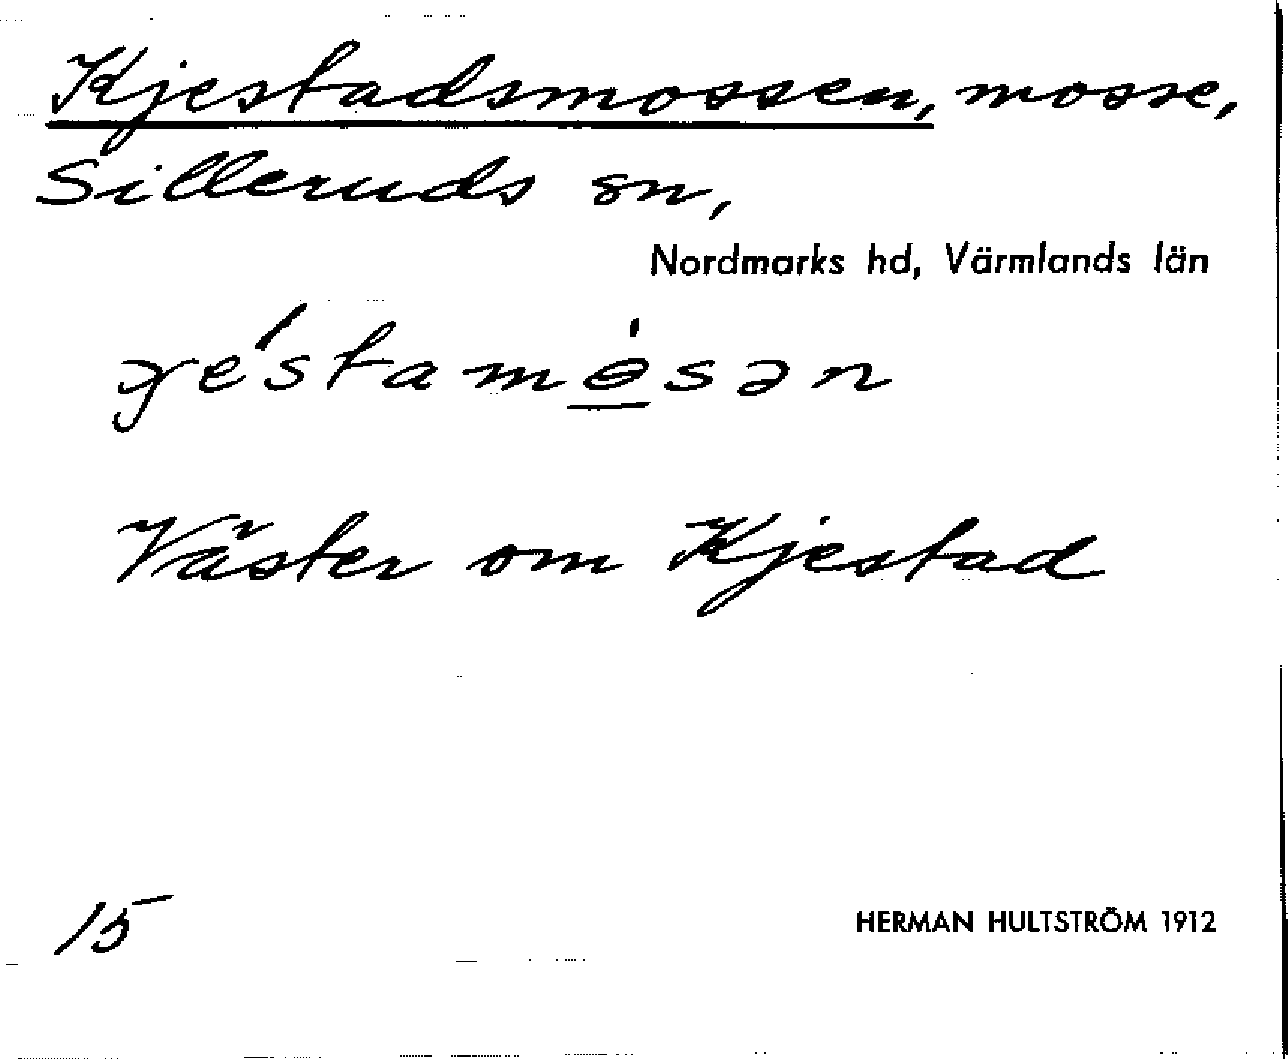 Kjestadsmossen, mosse,
Silleruds sn,
Nordmarks hd, Värmlands län
Väster om Kjestad
15
HERMAN HULTSTRÖM 1912